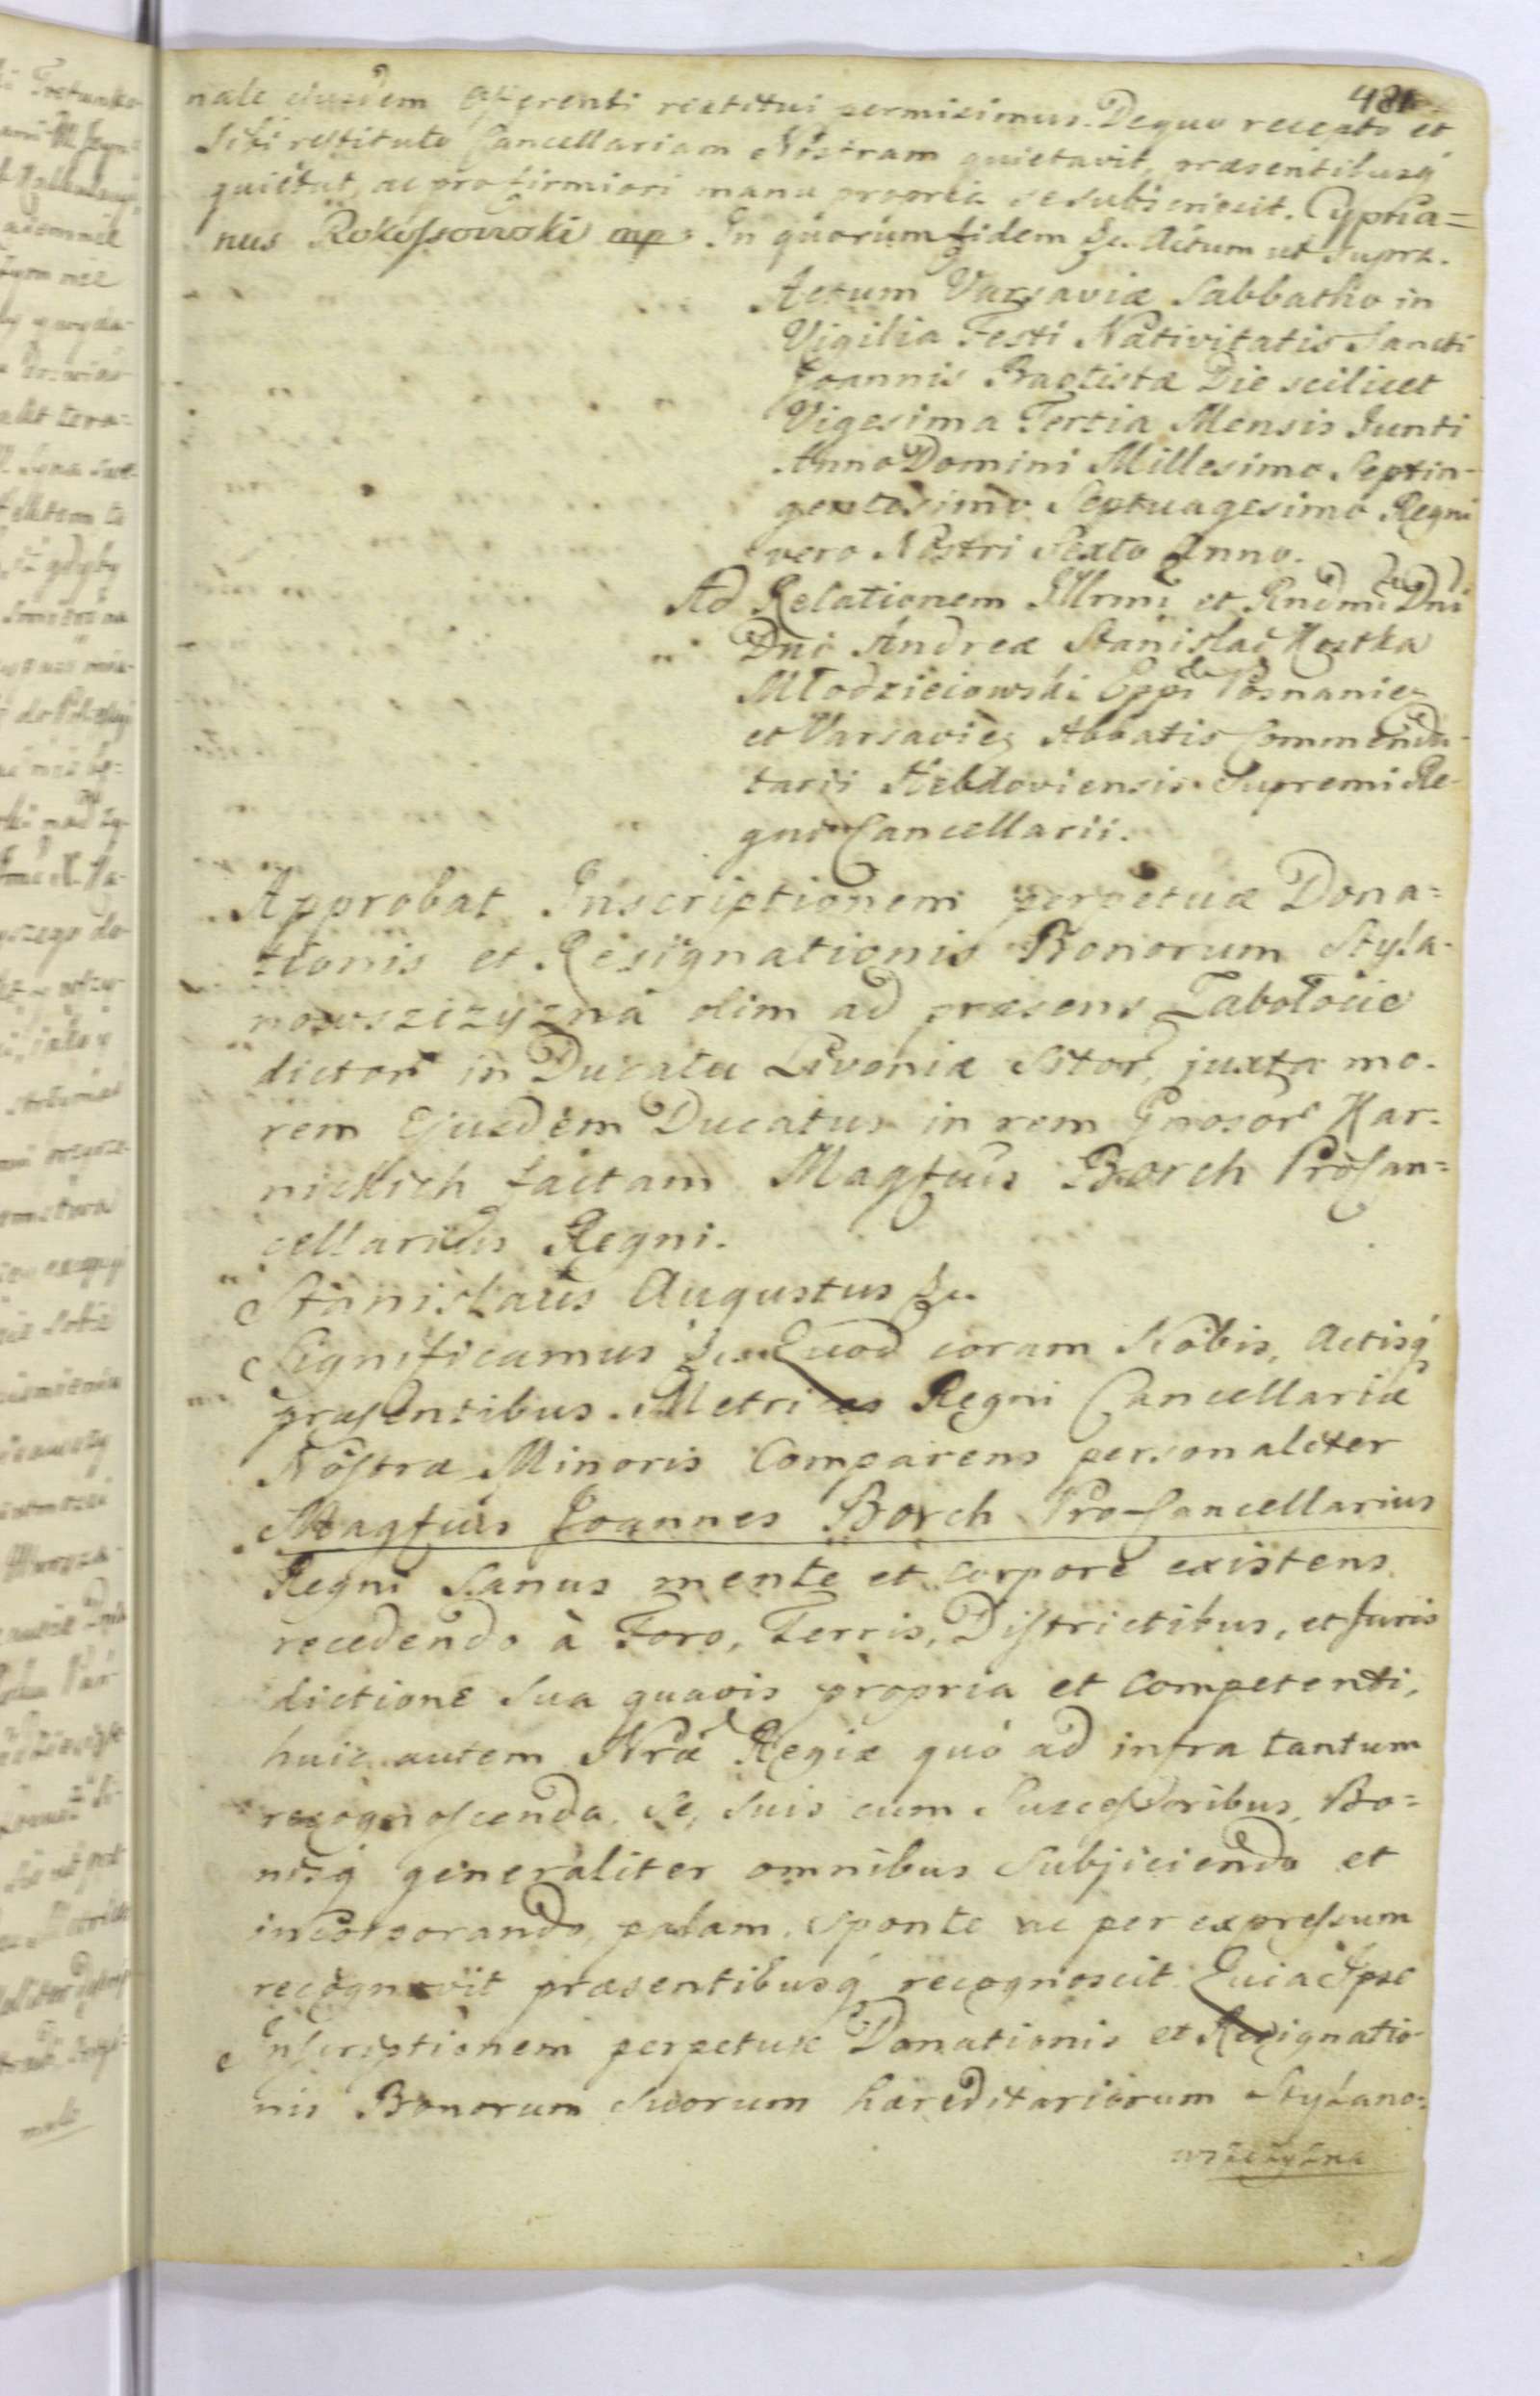 481
nale ejusdem Offerenti restitui permisimus. De quo recepto et
Sibi restituto Cancellariam Nostram quietavit, præsentibusq́
quietat, ac pro firmiori manu propria se subscripsit. Cypria=
nus Rokossowski mp In quorum fidem &c. Actum ut supra.
Actum Varsaviæ Sabbatho in
Vigilia Festi Nativitatis Sancti
Joannis Baptistæ Die scilicet
Vigesima Tertia Mensis Junii
Anno Domini Millesimo Septin-
gentesimo Septuagesimo Regni
vero Nostri Sexto Anno.
Ad Relationem Illrmi et Rndmi Dni
Dni Andreæ Stanislai Kostka
Młodzieiowski Eppi Posnanien
et Varsavien Abbatis Commenda-
tarii Hebdoviensis Supremi Re-
gni Cancellarii.
Approbat Inscriptionem perpetuæ Dona=
tionis et Resignationis Bonorum Styła-
nowszizyzna olim ad præsens Zabołocie
dictor in Ducatu Livoniæ Sitor, juxta mo-
rem Ejusdem Ducatus in rem Gnosor Kar-
nickich factam Magfcus Borch ProCan=
cellarius Regni.
Stanislaus Augustus &c.
Significamus &c. Quod coram Nobis, Actisq́
præsentibus Metrices Regni Cancellariæ
Nostræ Minoris Comparens personaliter
Magfcus Joannes Borch Pro-Cancellarius
Regni Sanus mente et corpore existens
recedendo à Foro, Terris, Districtibus, et Juris
dictione Sua quavis propria et Competenti,
huic autem Nræ Regiæ quó ad infra tantum
recognoscenda, Se, Suis cum Successoribus, Bo=
nisq́ generaliter omnibus Subjiciendo et
incorporando, palam, sponte ac per expressum
recognovit præsentibusq́ recognoscit Quia Ipse
Inscriptionem perpetuæ Donationis et Resignatio-
nis Bonorum Suorum hæreditariorum Styłano=
wszczyzna